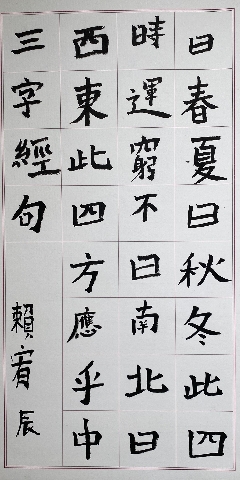 曰春夏曰秋冬此四
時運窮不曰南北曰
西東此四方應乎中
三字經句
賴宥辰